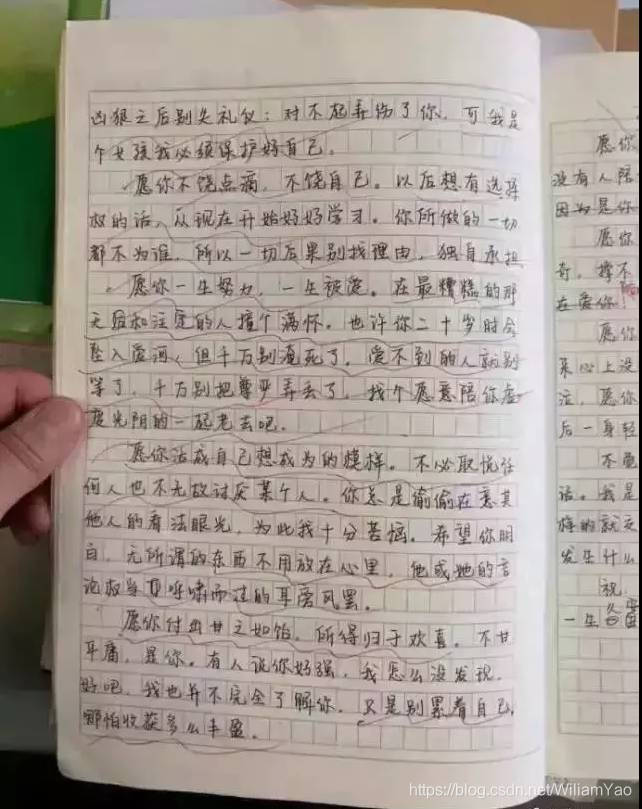 凶狠之后别失礼仪：对不起弄伤了你，可我是
个女孩我必须保护好自己。
愿你不饶点滴，不饶自己。以后想有选择
权的话，从现在开始好好学习。你所做的一切
都不为谁，所以一切后果别找理由，独自承担
愿你一生努力，一生被爱。在最糟糕的那
天后和注定的人撞个满怀。也许你二十岁时会
坠入爱河，但千万别淹死了。爱不到的人就别
等了，千万别把尊严弄丢了，找个愿意陪你虚
度光阴的一起老去吧。
愿你活成自己想成为的模样。不必取悦任
何人也不无故讨厌某个人。你总是偷偷在意其
他人的看法眼光，为此找十分苦恼。希望你明
白，无所谓的东西不用放在心里，他或她的言
论权当呼啸而过的耳旁风罢。
愿你付出甘之如饴，所得归于欢喜。不甘
平庸，是你。有人说你好强，我怎么没发现，
好吧，我也并不完全了解你，只是别累着自己，
哪怕收获多么丰盈。
愿你
没有人陪
因为是你
愿你
奇，撑不
在爱你
愿你
来心上没
泣，愿你
后一身轻
不免
话。我是
梅的就交
发生什么
祝
一生
https://blog.csdn.net/WiliamYao